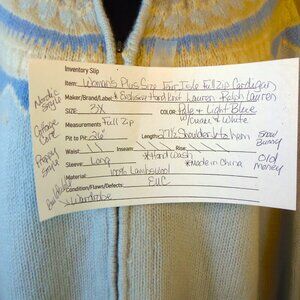 Inventory Slip
Item: Women's Plus Size Fair Isle Full Zip Cardigan
Maker/Brand/Label: Exclusive Hand Knit Lauren Ralph Lauren
SIZE: 3X COLOR: Pale & Light Blue
Measurements Full Zip w/ Cream & White
Pit to Pit: 26" Length: 27½ Shoulder to hem
Waist: Inseam: Rise:
Sleeve: Long *Hand Wash *Made in China
Material: 100% Lambswool
Condition/Flaws/Defects: EUC
Nordic Style
Cottage Core
Preppy Style
Wardrobe
Snow Bunny
Old Money